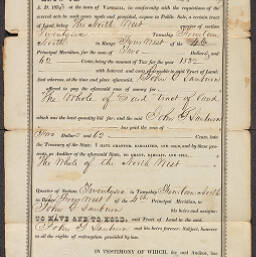 A. D. 18 at the town of VANDALIA, in conformity with the requisitions of the
several acts in such cases made and provided, expose to Public Sale, a certain tract
of Land, being The North West quarter of section
Twentyfive Township Fourteen
North in Range Four West of the 4th
Principal Meridian, for the sum of Two Dollars, and
62 Cents, being the amount of Tax for the year 1832
with Interest and costs chargeable on said Tract of Land:
and whereas, at the time and place aforesaid, John G
offered to pay the aforesaid sum of money for
The Whole of Said Tract of Land
which was the least quantity bid for, and the said John G
has paid the sum of
Two Dollars 62 Cents, into
the Treasury of the State: I HAVE GRANTED, BARGAINED, AND SOLD, and by these presents,
as Auditor of the aforesaid State, DO GRANT, BARGAIN, AND SELL,
The Whole of the North West
Quarter of Section Twentyfive in Township Fourteen North
in Range Four West of the 4th Principal Meridian, to
John G his heirs and assigns:
TO HAVE AND TO HOLD, said Tract of Land to the said
John G and his heirs forever: Subject, however
to all the rights of redemption provided by law.
IN TESTIMONY OF WHICH, the said Auditor, has